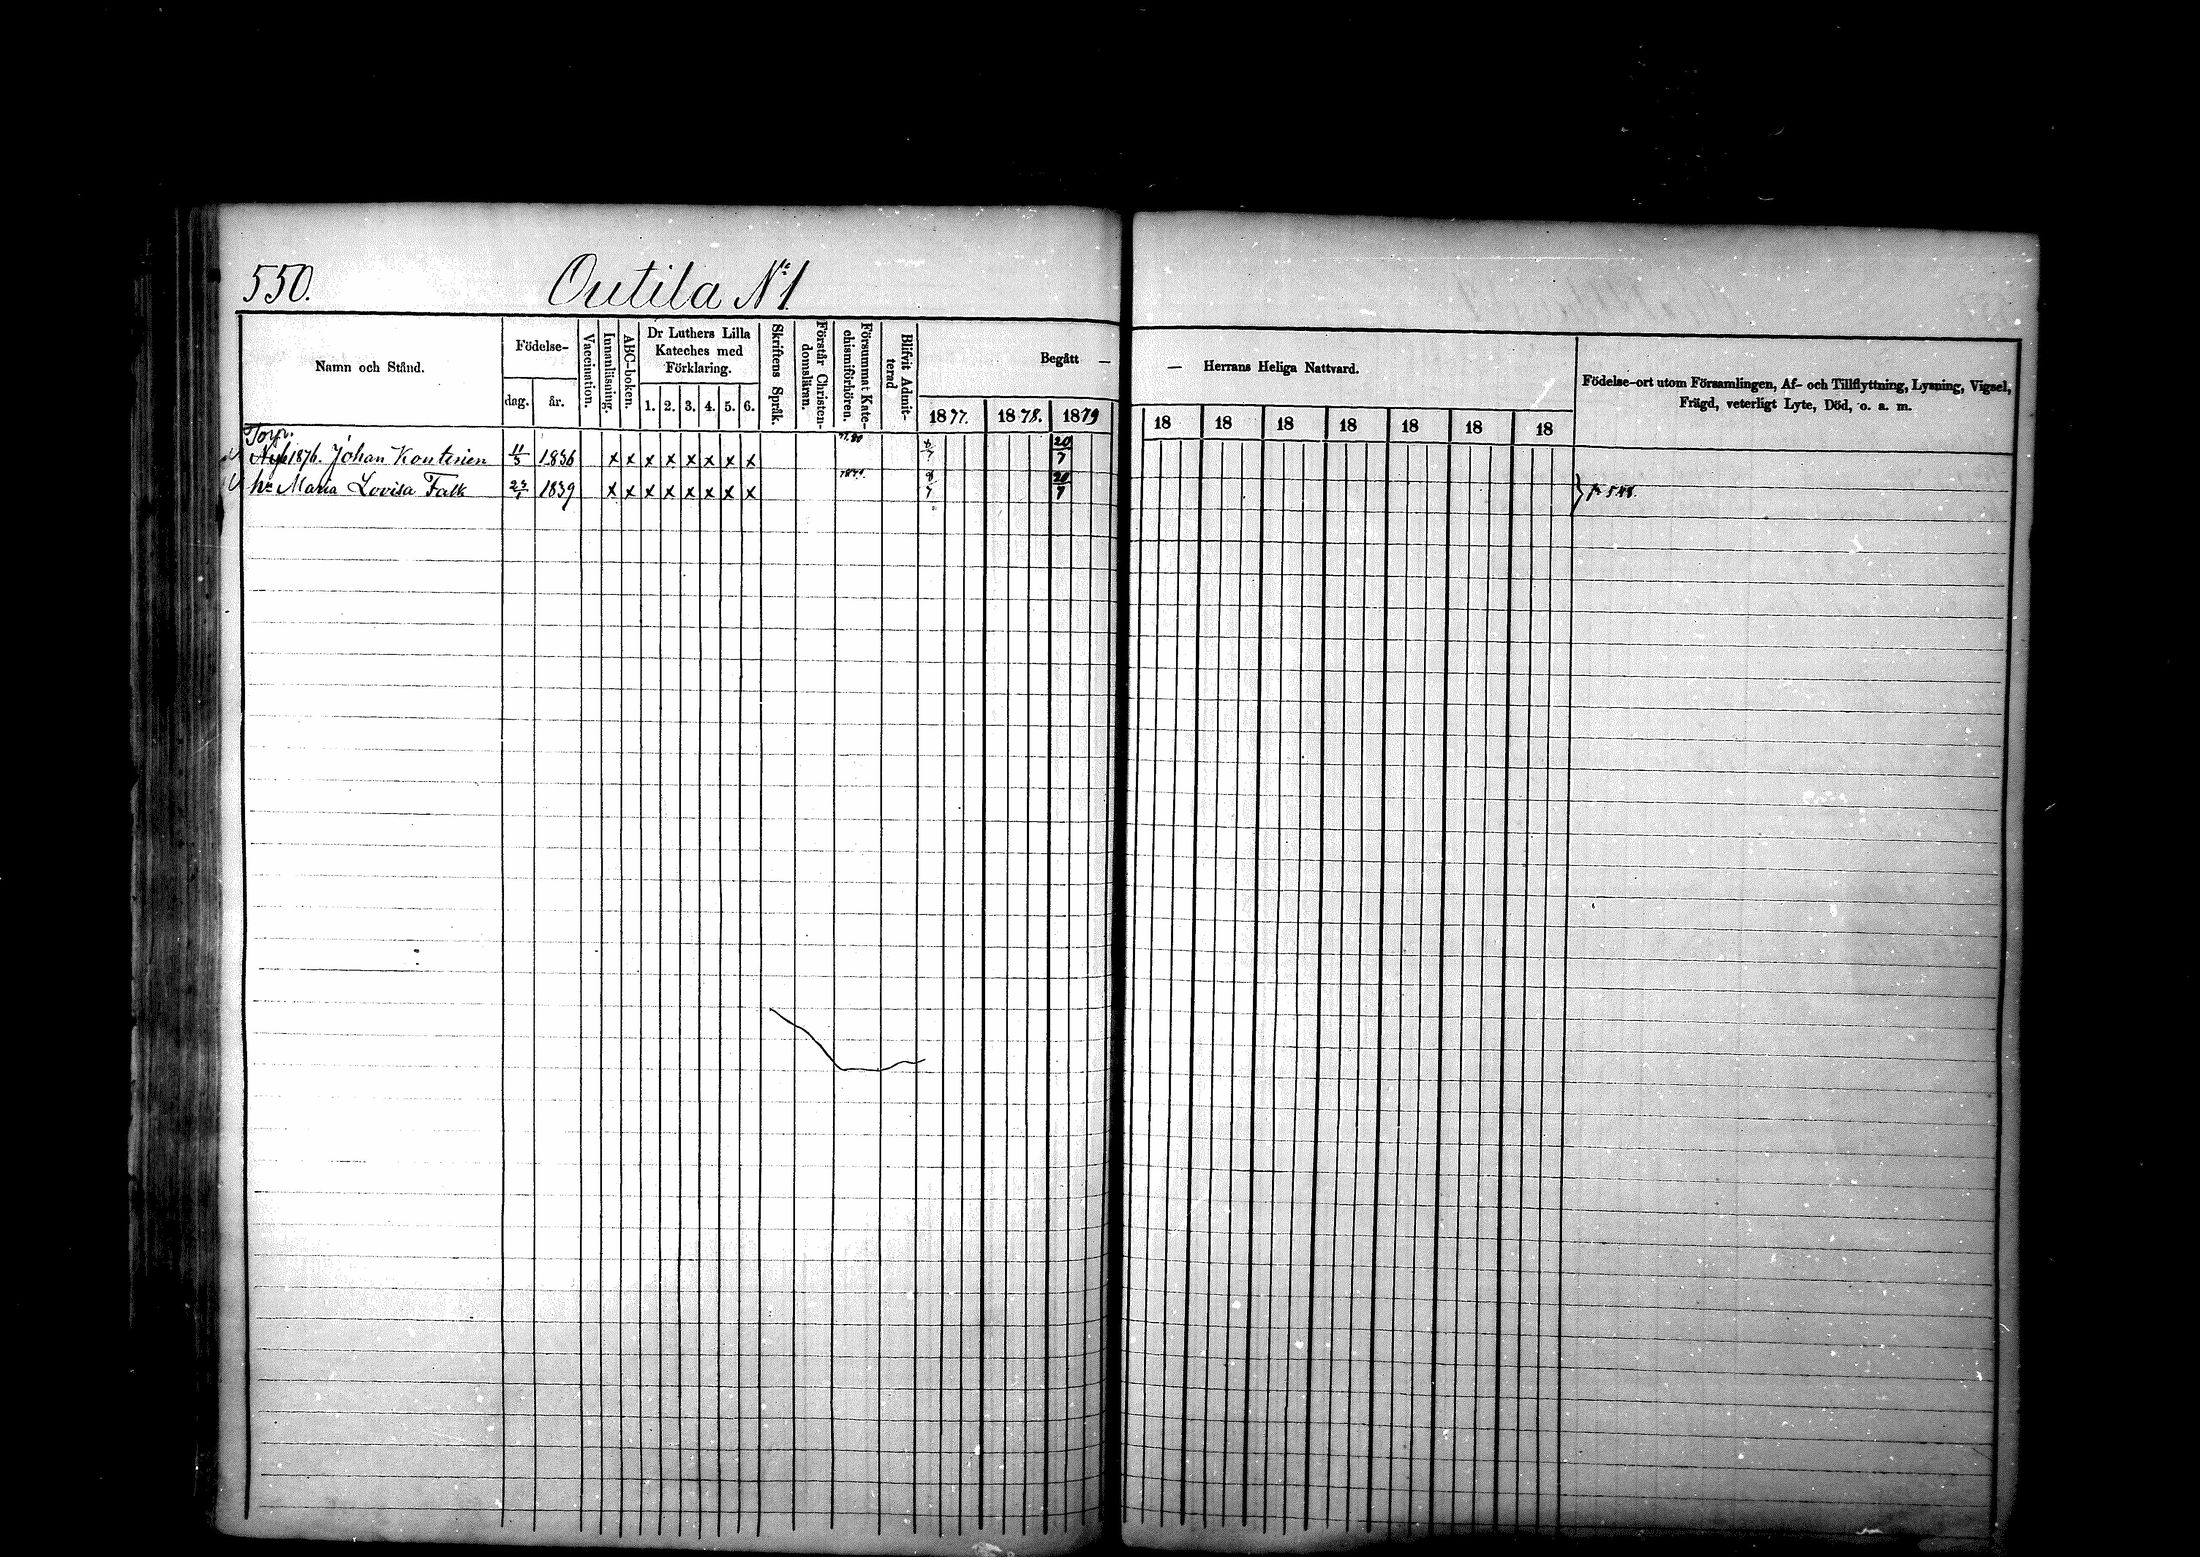 550. Outila N:o 1.
Namn och Stånd.
Födelse-
dag. år.
Vaccination.
Innanläsning.
ABC-boken.
Dr Luthers Lilla
Kateches med
Förklaring.
1. 2. 3. 4. 5. 6.
Skriftens Språk.
Förstår Christen-
domsläran.
Försummat Kate-
chismiförhören.
Blifvit Admit-
terad
Begått —
1877. 1878. 1879
— Herrans Heliga Nattvard.
18 18 18 18 18 18 18
Födelse-ort utom Församlingen, Af- och Tillflyttning, Lysning, Vigsel,
Frägd, veterligt Lyte, Död, o. a. m.
Torp.
1876. Johan Kontinen 11/5 1836 x x x x x x x x 20/7
hu Maria Lovisa Falk 1839 x x x x x x x x 20/7
p 548.